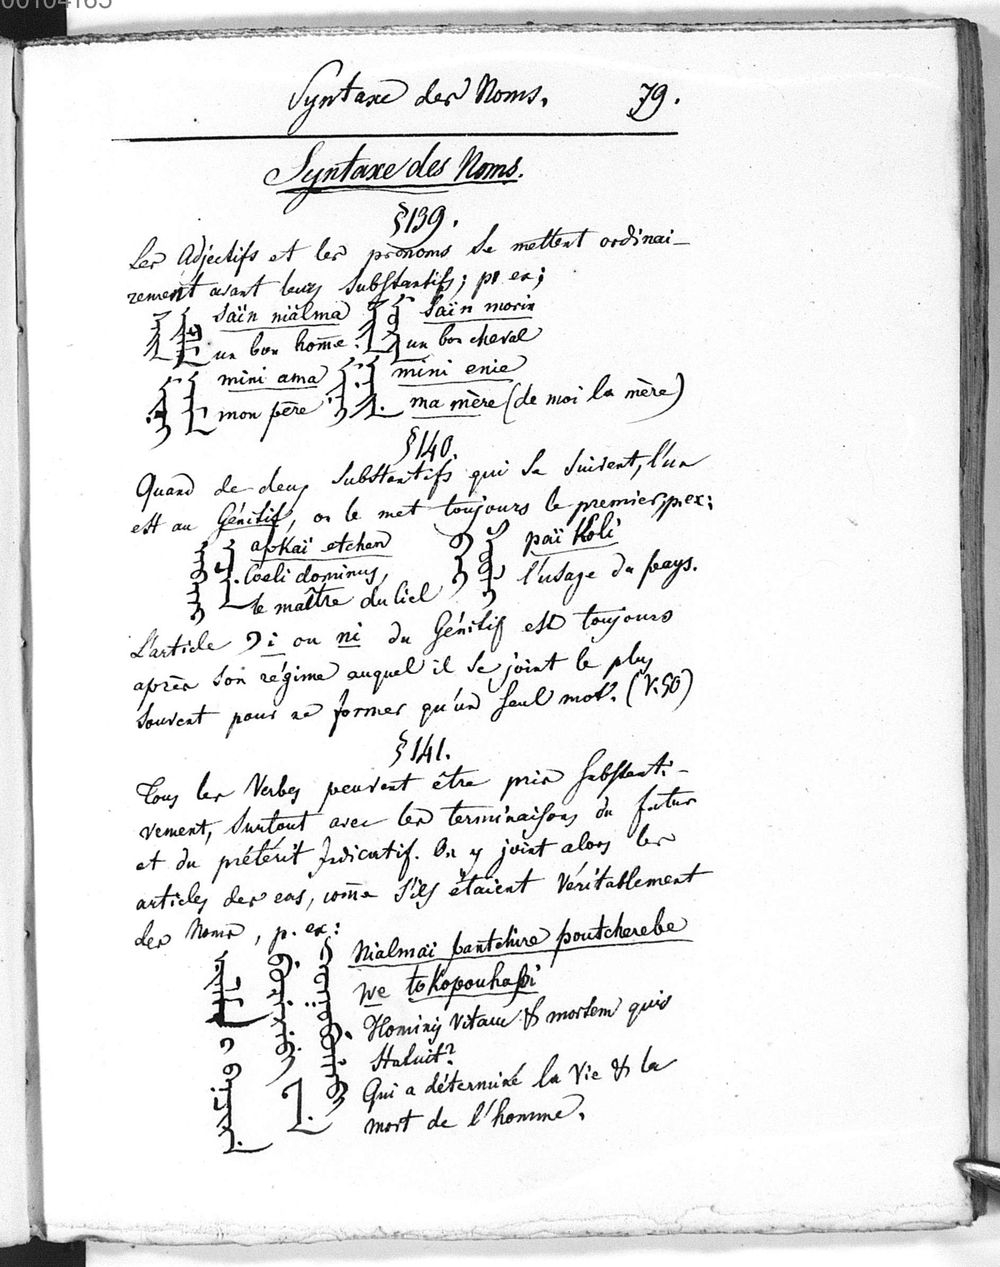 00104165
Syntaxe des Noms. 79.
Syntaxe des Noms.
§139.
Les Adjectifs et les prònoms se mettent ordinai-
rement avant leurs substantifs; p. ex;
ᠰᠠᡳᠨ ᠨᡳᠶᠠᠯᠮᠠ saïn niàlma ᠰᠠᡳᠨ ᠮᠣᡵᡳᠨ saïn morin
un bon hom̄e. un bon cheval
ᠮᡳᠨᡳ ᠠᠮᠠ mini ama ᠮᡳᠨᡳ ᡝᠨᡳᠶᡝ mini enie
mon père. ma mère (de moi la mère)
§140.
Quand de deux substantifs qui se suivent, l'un
est au Génitif, on le met toujours le premier, p. ex:
ᠠᠪᡴᠠᡳ ᡝᠵᡝᠨ apkaï etchen païkoli
Coeli dominus, l'usage du pays.
le maître du Ciel
L'article ᡳ i ou ni du Génitif est toujours
après son régime auquel il se joint le plus
souvent pour ne former qu'un seul mot. (V. 50)
§141.
Tous les Verbes peuvent être pris substanti-
vement, surtout avec les terminaisons du futur
et du prétérit Indicatif. On y joint alors les
articles des cas, com̄e s'ils étaient véritablement
des Noms, p. ex:
Nialmaï pantchire poutcherebe
we tokopouhapi
Hominis vitam & mortem quis
statuit?
Qui a déterminé la vie & la
mort de l'homme.